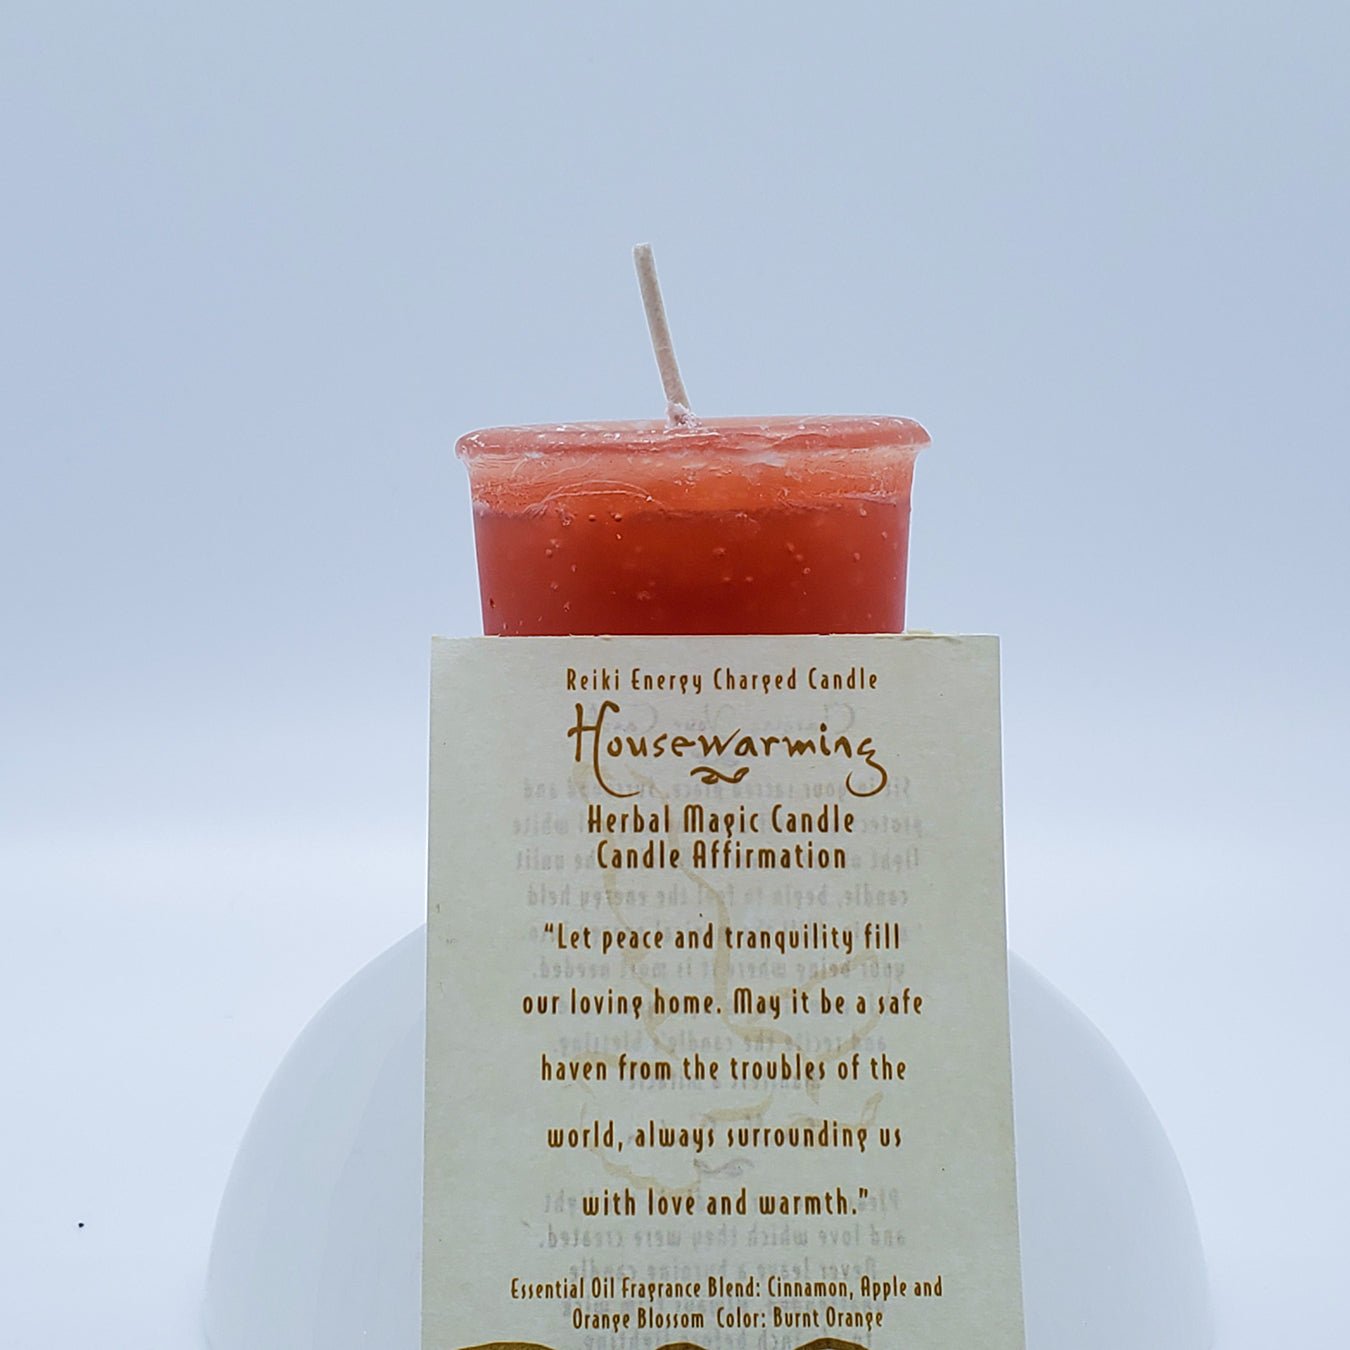 Reiki Energy Charged Candle
Housewarming
Herbal Magic Candle
Candle Affirmation
“Let peace and tranquility fill
our loving home. May it be a safe
haven from the troubles of the
world, always surrounding us
with love and warmth.”
Essential Oil Fragrance Blend: Cinnamon, Apple and
Orange Blossom Color: Burnt Orange